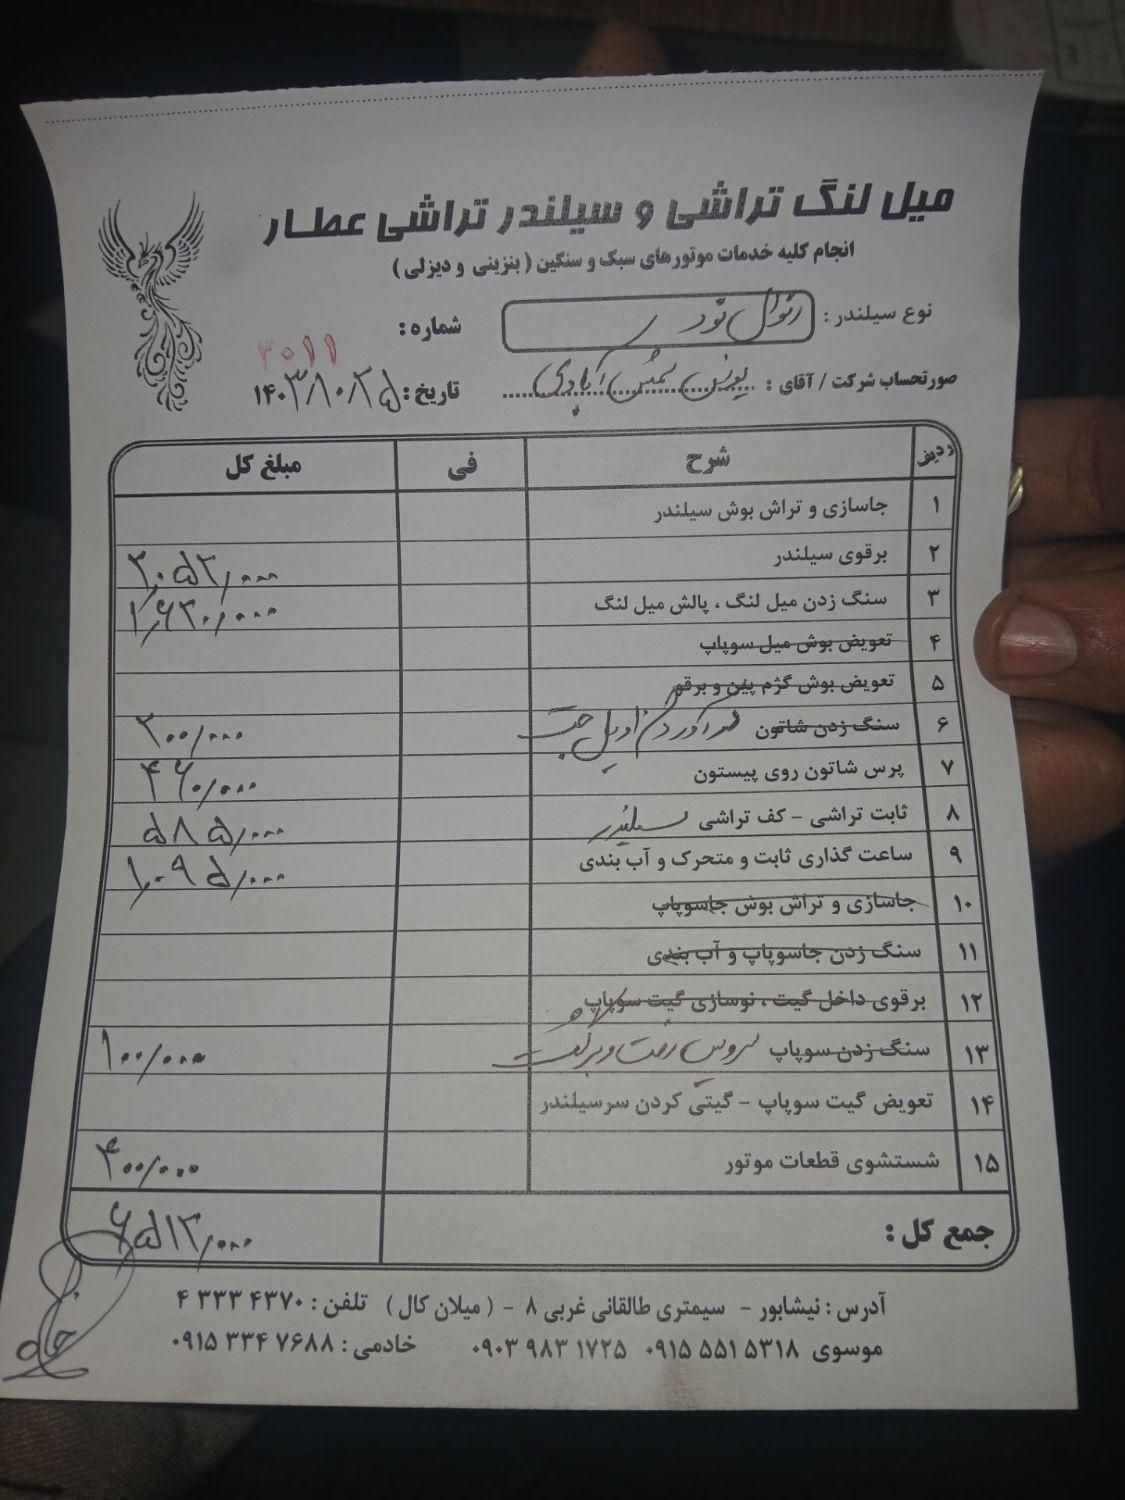 میل لنگ تراشی و سیلندر تراشی عطار
انجام کلیه خدمات موتورهای سبک و سنگین ( بنزینی و دیزلی )
نوع سیلندر : رنو ال نود شماره : ۳۰۱۱
صورتحساب شرکت / آقای : یونس شمس آبادی تاریخ : ۱۴۰۳/۱۰/۲۵
ردیف شرح فی مبلغ کل
۱ جاسازی و تراش بوش سیلندر
۲ برقوی سیلندر ۲,۰۵۲,۰۰۰
۳ سنگ زدن میل لنگ ، پالش میل لنگ ۱,۶۲۰,۰۰۰
۴ تعویض بوش میل سوپاپ
۵ تعویض بوش گژم پین و برقو
۶ سنگ زدن شاتون درآوردن اویل جت ۲۰۰,۰۰۰
۷ پرس شاتون روی پیستون ۴۶۰,۰۰۰
۸ ثابت تراشی - کف تراشی سیلندر ۵۸۵,۰۰۰
۹ ساعت گذاری ثابت و متحرک و آب بندی ۱,۰۹۵,۰۰۰
۱۰ جاسازی و تراش بوش جاسوپاپ
۱۱ سنگ زدن جاسوپاپ و آب بندی
۱۲ برقوی داخل گیت ، نوسازی گیت سوپاپ
۱۳ سنگ زدن سوپاپ سرویس رفت و برگشت ۱۰۰,۰۰۰
۱۴ تعویض گیت سوپاپ - گیتی کردن سرسیلندر
۱۵ شستشوی قطعات موتور ۴۰۰,۰۰۰
جمع کل : ۶,۵۱۲,۰۰۰
آدرس : نیشابور - سیمتری طالقانی غربی ۸ - ( میلان کال ) تلفن : ۴۳۷۰ ۳۳۳ ۴
موسوی ۵۳۱۸ ۵۵۱ ۰۹۱۵ ۱۷۲۵ ۹۸۳ ۰۹۰۳ خادمی : ۷۶۸۸ ۳۳۴ ۰۹۱۵